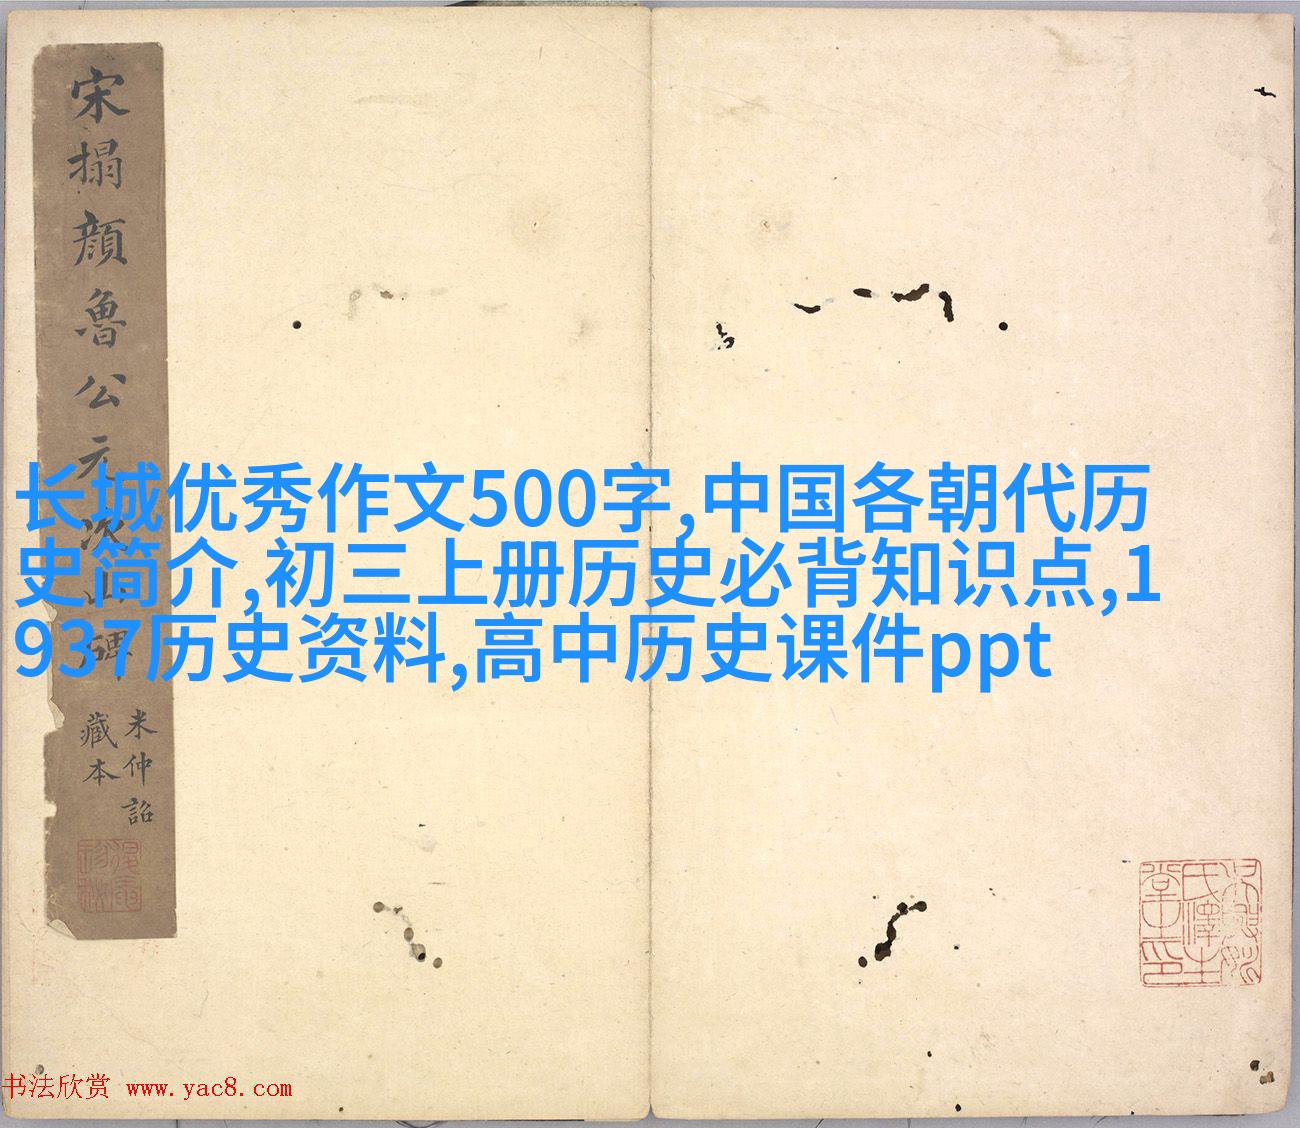 宋搨顔魯公元次山碑
米仲詔
藏本
长城优秀作文500字,中国各朝代历
史简介,初三上册历史必背知识点,1
937历史资料,高中历史课件ppt
书法欣赏 www.yac8.com